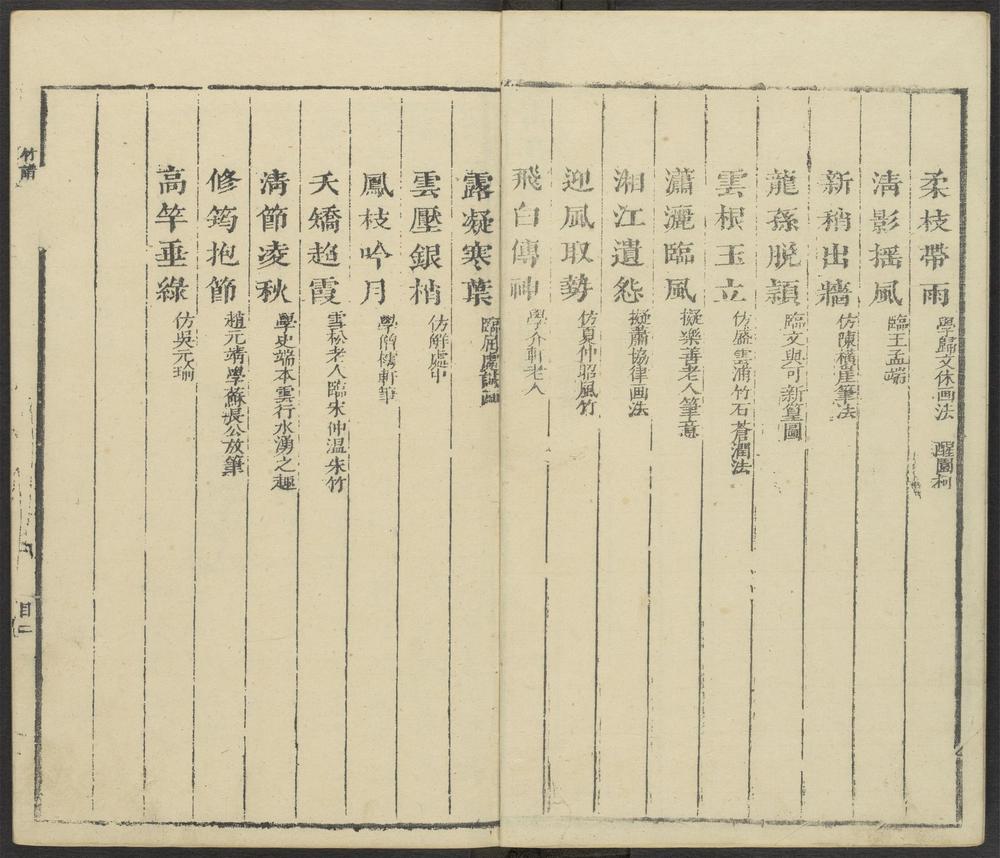 柔枝帶雨 學歸文休画法 醒園柯
清影搖風 臨王孟端
新稍出牆 仿陳橫崖筆法
龍孫脫穎 臨文與可新篁圖
雲根玉立 仿盛雲浦竹石蒼潤法
瀟灑臨風 擬樂善老人筆意
湘江遺怨 擬蕭協律画法
迎風取勢 仿夏仲昭風竹
飛白傳神 學介軒老人
露凝寒葉 臨屈處誠画
雲壓銀梢 仿解處中
鳳枝吟月 學軒筆
夭矯超霞 雪松老人臨宋仲温朱竹
清節凌秋 學史端本雲行水湧之趣
修筠抱節 趙元靖學蘇長公放筆
高竿垂綠 仿吳元瑜
竹譜
目二